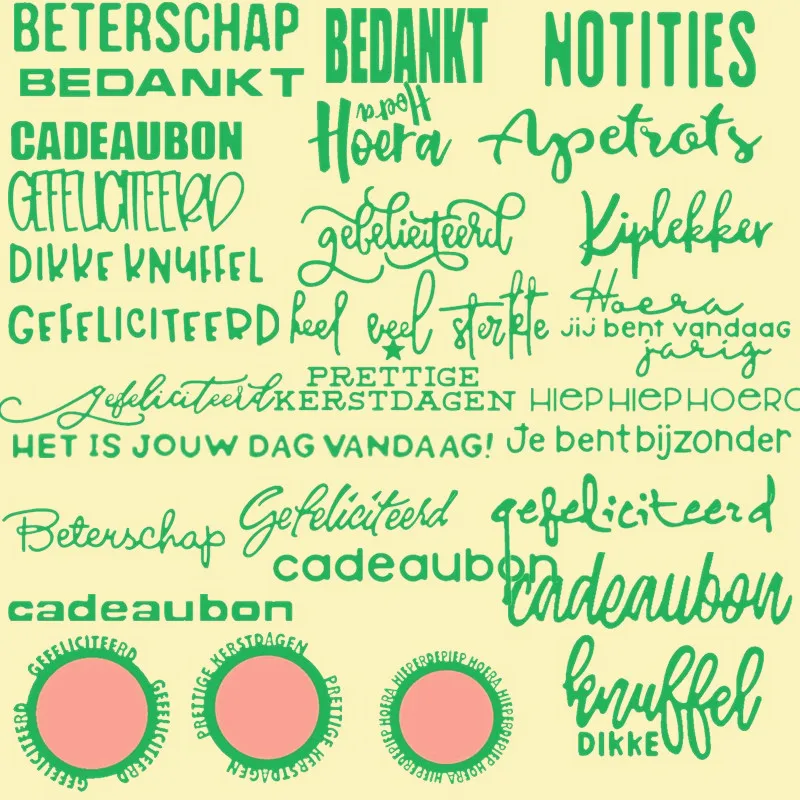 BETERSCHAP
BEDANKT
BEDANKT
NOTITIES
CADEAUBON
Hoera
Hoera
Apetrots
GEFELICITEERD
gefeliciteerd
Kiplekker
DIKKE KNUFFEL
GEFELICITEERD
heel veel sterkte
Hoera
jij bent vandaag
jarig
gefeliciteerd
PRETTIGE
KERSTDAGEN
HIEPHIEPHOERA
HET IS JOUW DAG VANDAAG!
Je bent bijzonder
Beterschap
Gefeliciteerd
gefeliciteerd
cadeaubon
cadeaubon
cadeaubon
GEFELICITEERD GEFELICITEERD GEFELICITEERD
PRETTIGE KERSTDAGEN PRETTIGE KERSTDAGEN
HIEPERDEPIEP HOERA HIEPERDEPIEP HOERA HIEPERDEPIEP HOERA
knuffel
DIKKE